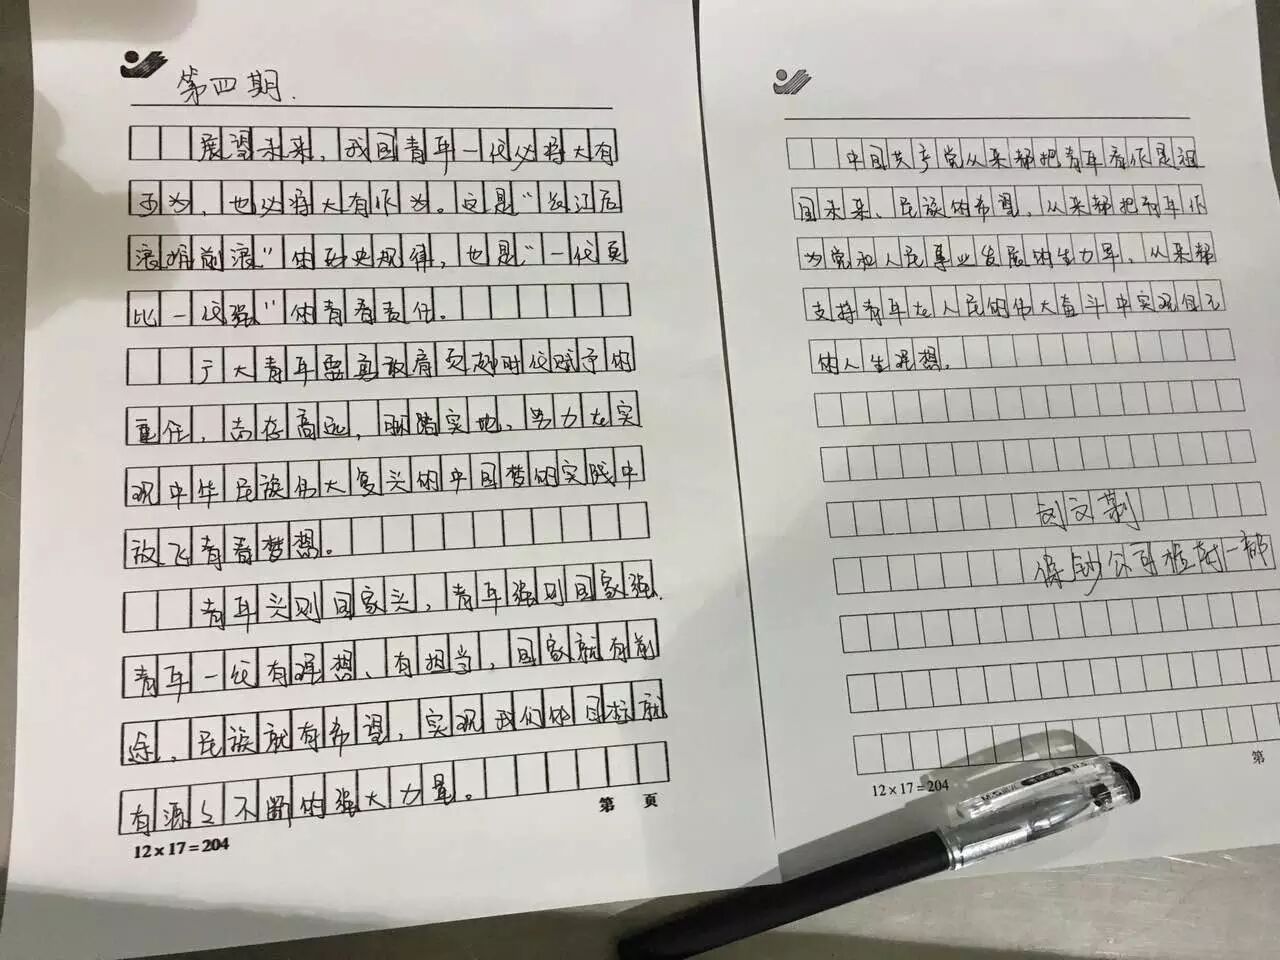 第四期.
展望未来，我国青年一代必将大有
可为，也必将大有作为。这是“长江后
浪推前浪”的历史规律，也是“一代更
比一代强”的青春责任。
广大青年要勇敢肩负起时代赋予的
重任，志存高远，脚踏实地，努力在实
现中华民族伟大复兴的中国梦的实践中
放飞青春梦想。
青年兴则国家兴，青年强则国家强.
青年一代有理想、有担当，国家就有前
途，民族就有希望，实现我们的目标就
有源源不断的强大力量。
第 页
12×17=204
中国共产党从来都把青年看作是祖
国未来、民族的希望，从来都把青年作
为党和人民事业发展的生力军，从来都
支持青年在人民的伟大奋斗中实现自己
的人生理想。
文
保钞公司检封一部
第
12×17=204